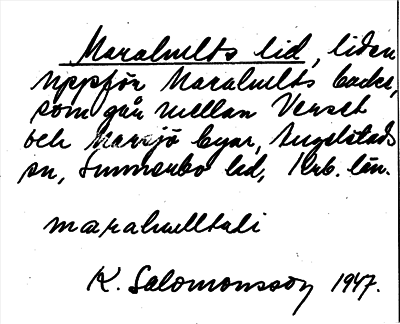 Maralvelts lid, liden
uppför Maralvelts backe,
som går mellan Verset
och Marsjö byar, Ängelstads
sn, Sunnerbo hd, Krb. län.
K. Salomonsson 1947.